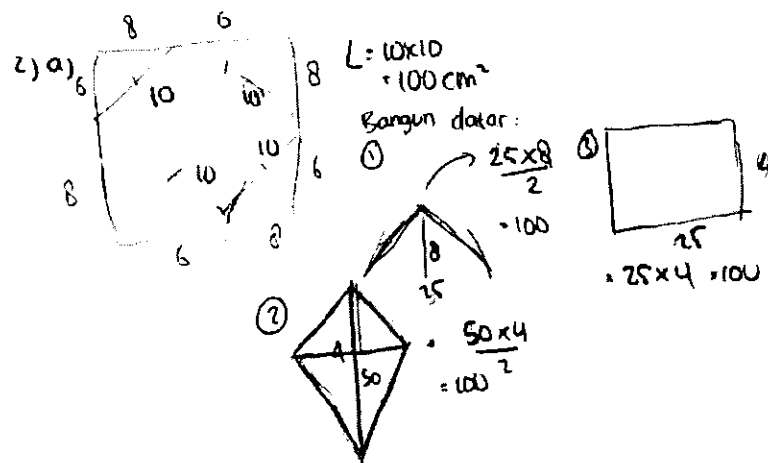 2) a)
8 6
6 8
10 10
10 10
8 6
6 8
L = 10x10
= 100 cm²
Bangun datar :
①
25 x 8
2
= 100
8
25
②
4
50
= 50 x 4
2
= 100
③
4
25
= 25 x 4 = 100